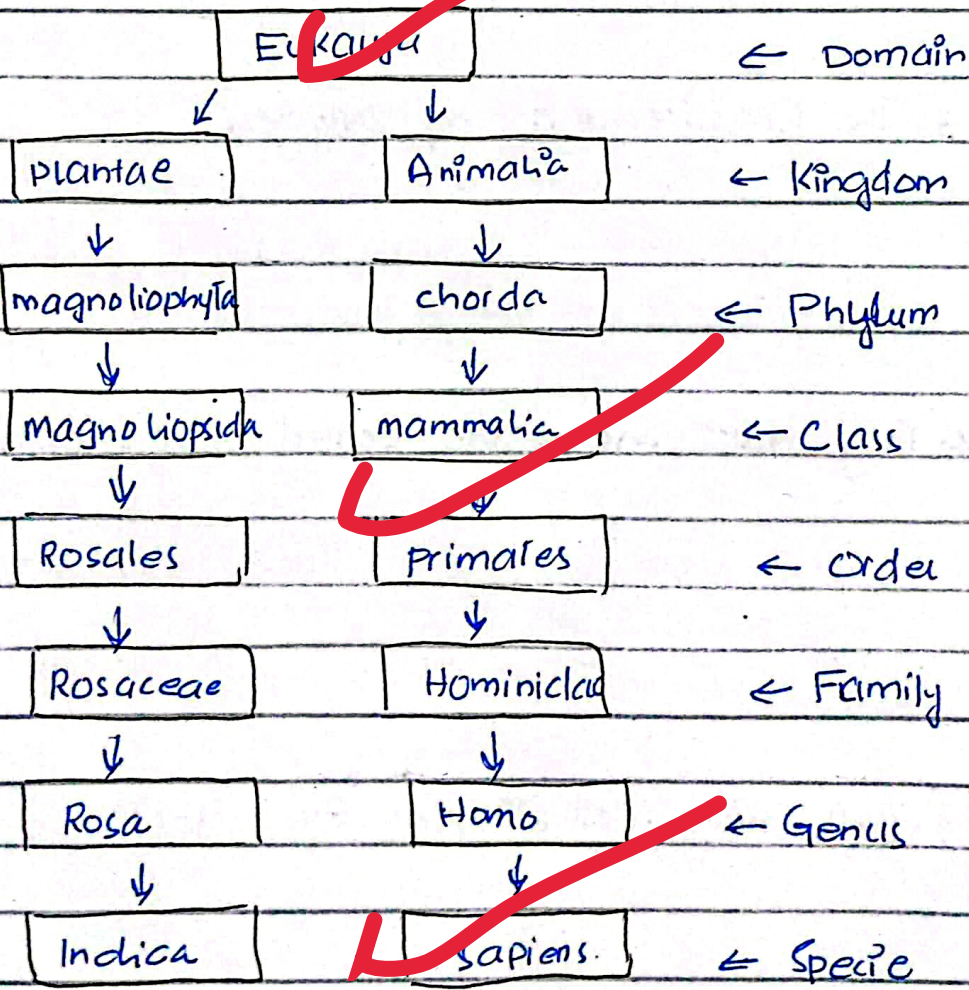 Eukarya ← Domain
Plantae Animalia ← Kingdom
magnoliophyta chorda ← Phylum
magnoliopsida mammalia ← Class
Rosales primates ← Order
Rosaceae Hominidae ← Family
Rosa Homo ← Genus
Indica sapiens. ← Specie